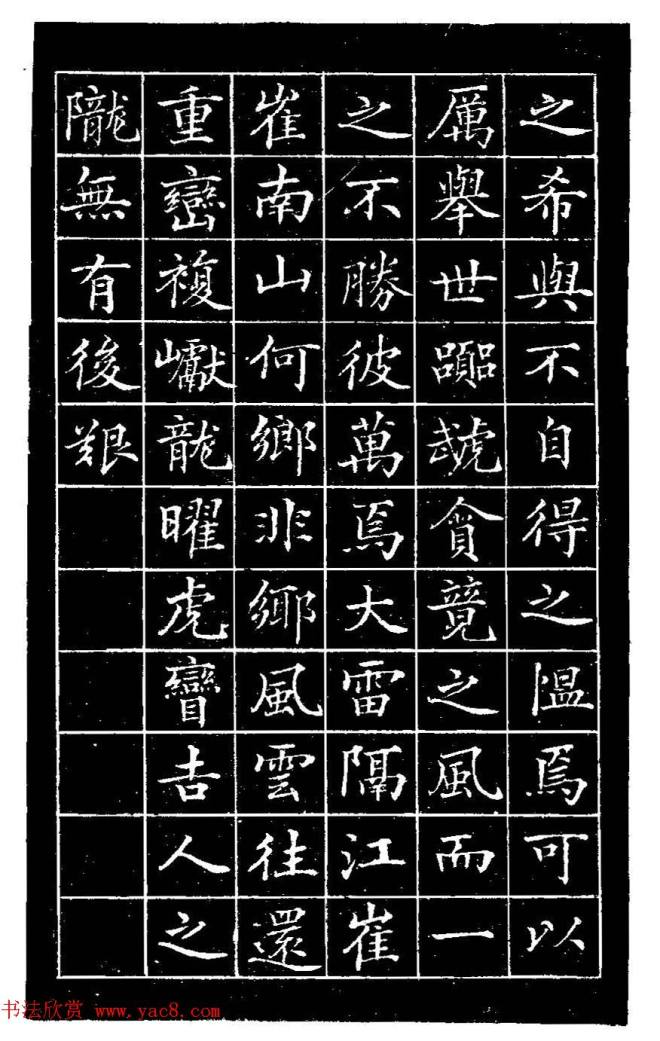 之希與不自得之愠焉可以
厲舉世虣貪竟之風而一
之不勝彼萬焉大雷隔江崔
崔南山何鄉非鄉風雲往還
重巒複巘龍曜虎矕吉人之
隴無有後艱
书法欣赏 www.yac8.com